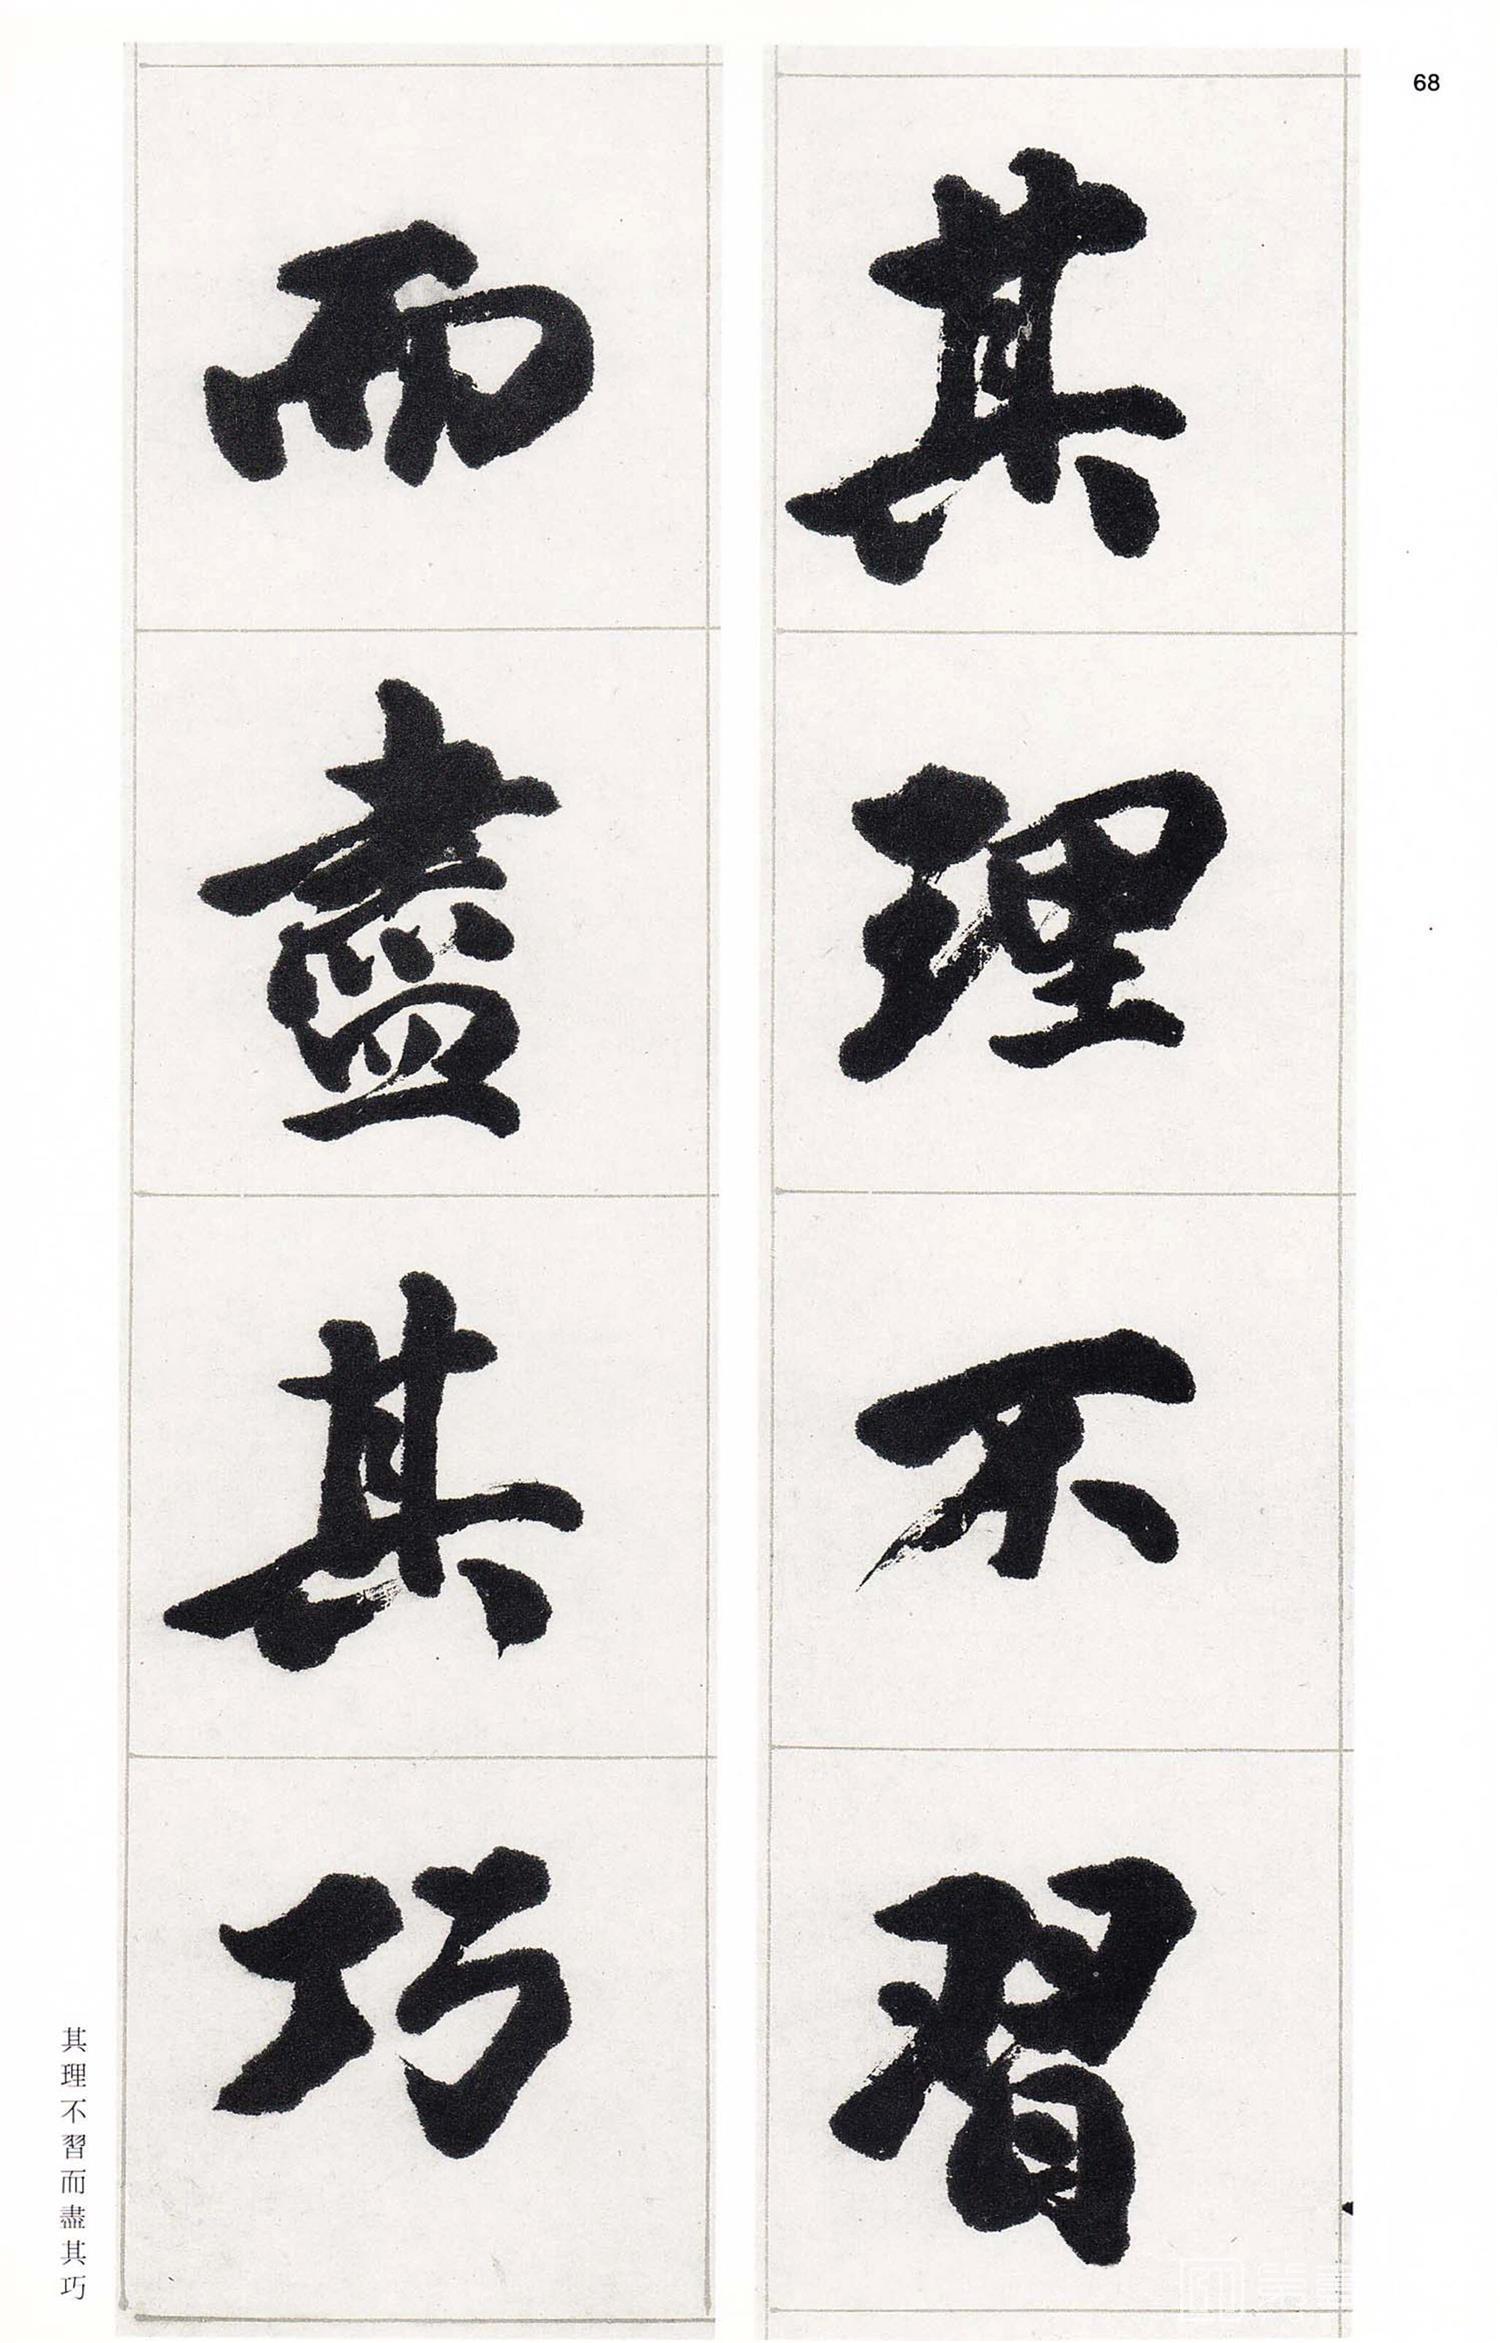 68
其理不習
而盡其巧
其理不習而盡其巧